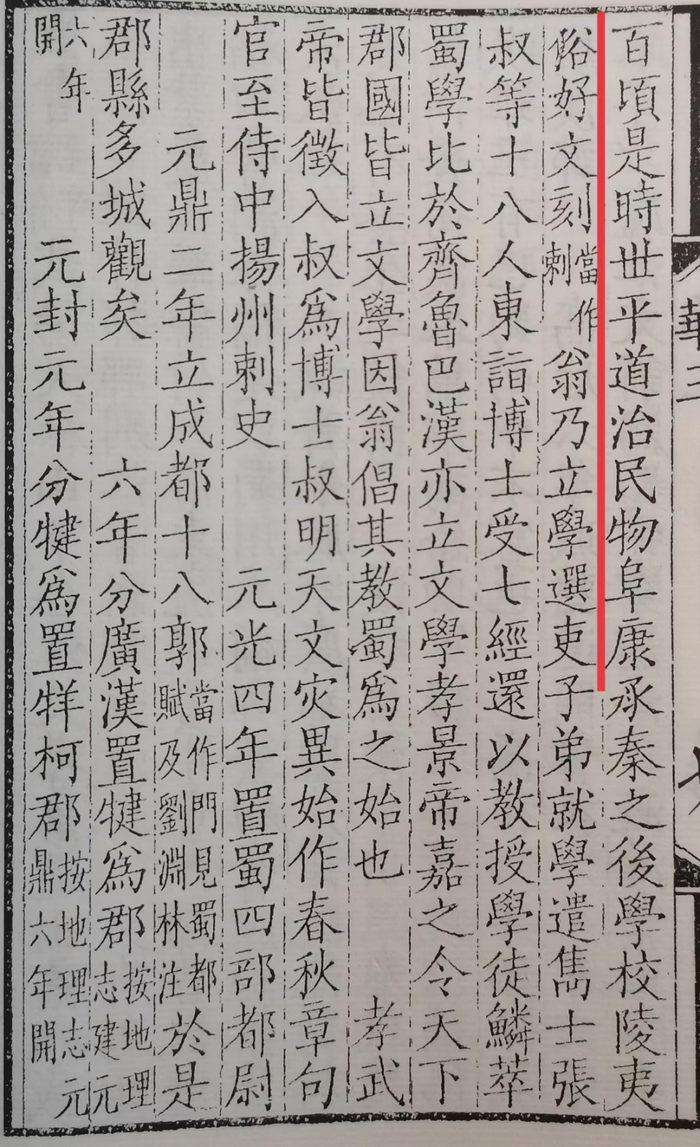 百頃是時世平道治民物阜康承秦之後學校陵夷
俗好文刻當作刺翁乃立學選吏子弟就學遣雋士張
叔等十八人東詣博士受七經還以教授學徒鱗萃
蜀學比於齊魯巴漢亦立文學孝景帝嘉之令天下
郡國皆立文學因翁倡其教蜀爲之始也 孝武
帝皆徵入叔爲博士叔明天文灾異始作春秋章句
官至侍中揚州刺史 元光四年置蜀四部都尉
元鼎二年立成都十八郭當作門見蜀都賦及劉淵林注於是
郡縣多城觀矣 六年分廣漢置犍爲郡按地理志建元
六年開 元封元年分犍爲置牂柯郡按地理志元鼎六年開